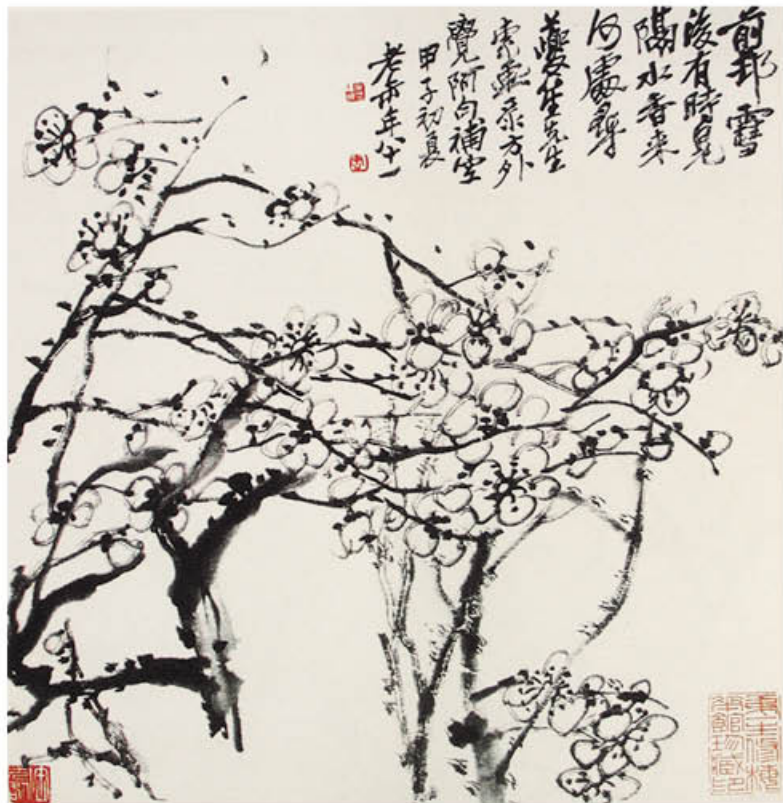 前邨雪
後有時見
隔水香來
何處尋
夔笙先生
索 方外
覺阿句補空
甲子初夏
老缶年八十一